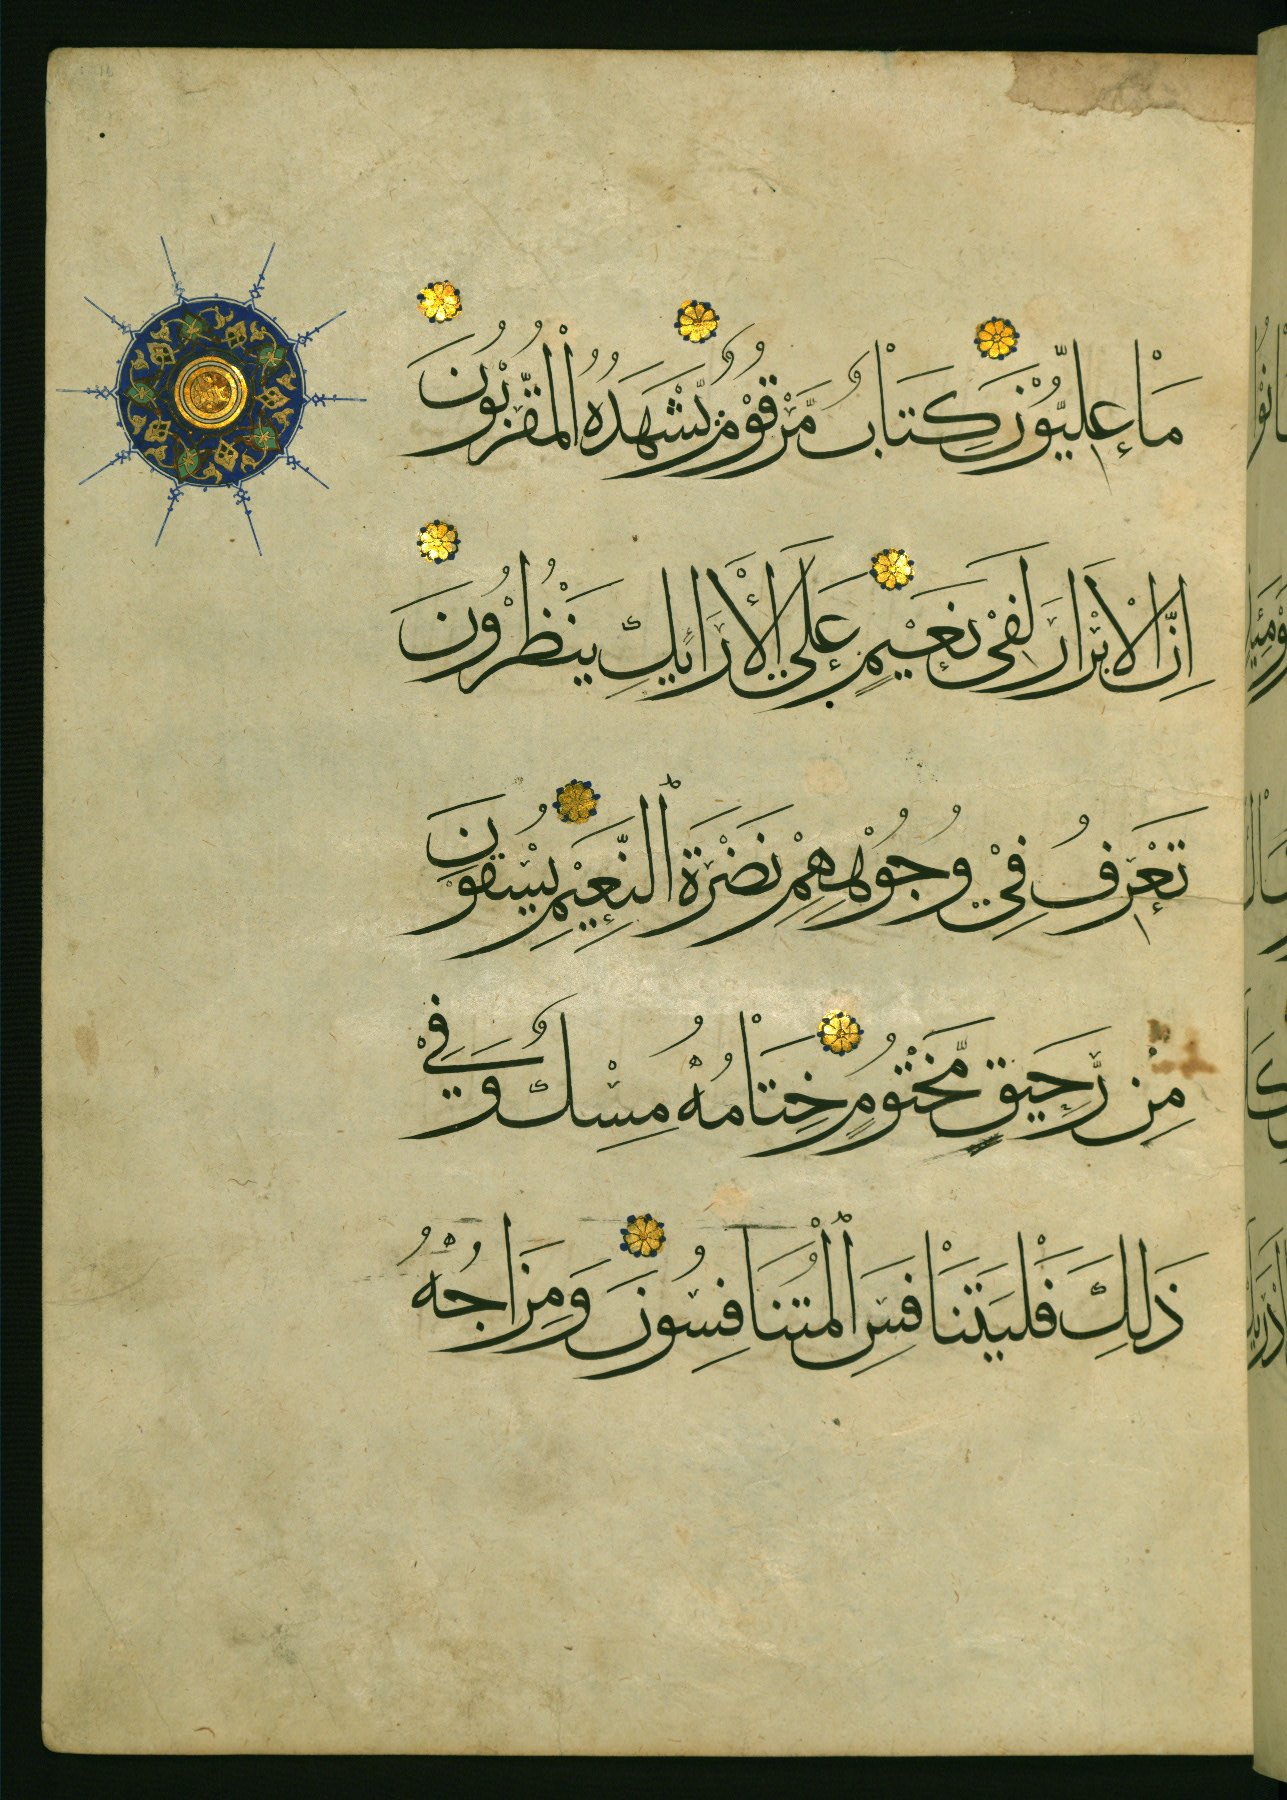 مَا عِلِّيُّونَ كِتَابٌ مَّرْقُومٌ يَّشْهَدُهُ الْمُقَرَّبُونَ
اِنَّ الْاَبْرَارَ لَفِيْ نَعِيْمٍ عَلَى الْاَرَائِكِ يَنْظُرُونَ
تَعْرِفُ فِيْ وُجُوْهِهِمْ نَضْرَةَ النَّعِيْمِ يُسْقَوْنَ
مِنْ رَّحِيْقٍ مَّخْتُوْمٍ خِتَامُهُ مِسْكٌ وَفِيْ
ذَلِكَ فَلْيَتَنَافَسِ الْمُتَنَافِسُونَ وَمِزَاجُهُ